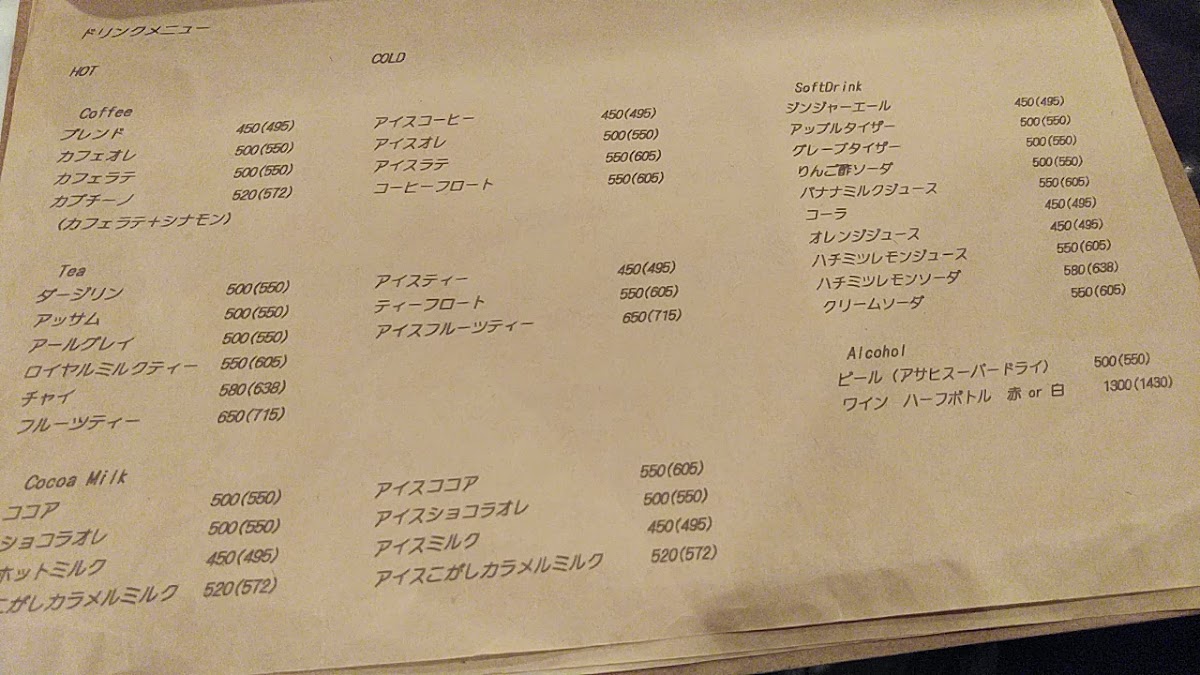 ドリンクメニュー
HOT
Coffee
ブレンド 450(495)
カフェオレ 500(550)
カフェラテ 500(550)
カプチーノ 520(572)
(カフェラテ+シナモン)
Tea
ダージリン 500(550)
アッサム 500(550)
アールグレイ 500(550)
ロイヤルミルクティー 550(605)
チャイ 580(638)
フルーツティー 650(715)
Cocoa Milk
ココア 500(550)
ショコラオレ 500(550)
ホットミルク 450(495)
こがしカラメルミルク 520(572)
COLD
アイスコーヒー 450(495)
アイスオレ 500(550)
アイスラテ 550(605)
コーヒーフロート 550(605)
アイスティー 450(495)
ティーフロート 550(605)
アイスフルーツティー 650(715)
アイスココア 550(605)
アイスショコラオレ 500(550)
アイスミルク 450(495)
アイスこがしカラメルミルク 520(572)
SoftDrink
ジンジャーエール 450(495)
アップルタイザー 500(550)
グレープタイザー 500(550)
りんご酢ソーダ 500(550)
バナナミルクジュース 550(605)
コーラ 450(495)
オレンジジュース 450(495)
ハチミツレモンジュース 550(605)
ハチミツレモンソーダ 580(638)
クリームソーダ 550(605)
Alcohol
ビール (アサヒスーパードライ) 500(550)
ワイン ハーフボトル 赤 or 白 1300(1430)